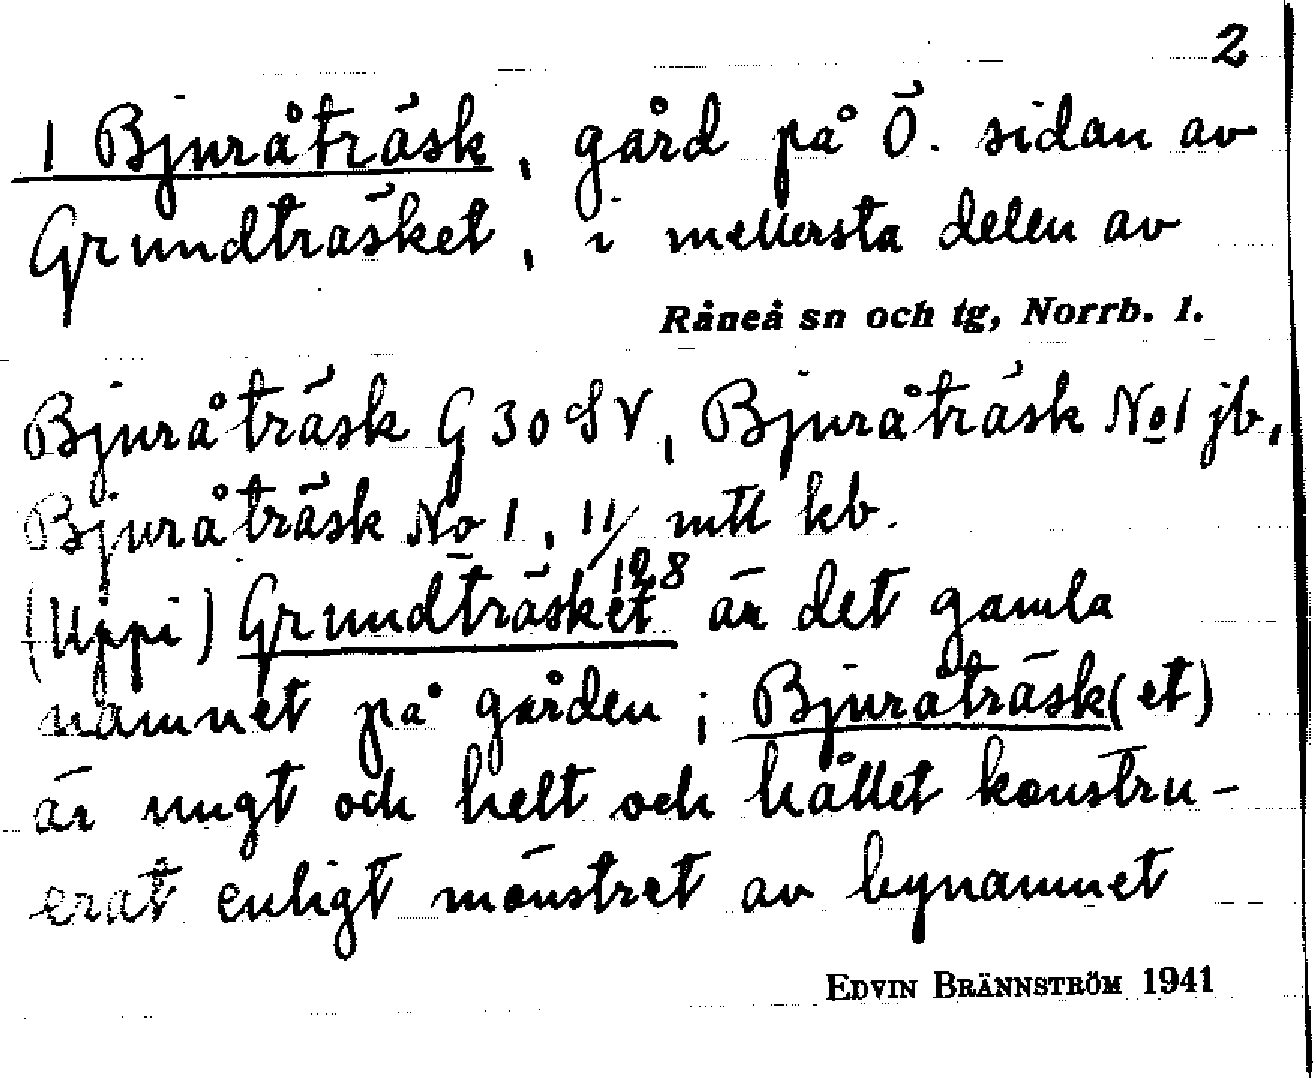 2
1 Bjuråträsk, gård på Ö. sidan av
Grundträsket, i mellersta delen av
Råneå sn och tg, Norrb. l.
Bjuråträsk G 30 SV, Bjuråträsk No 1 jb,
Bjuråträsk No 1, 11/128 mtl kb.
(Uppi) Grundträsket är det gamla
namnet på gården; Bjuråträsk(et)
är ungt och helt och hållet konstru-
erat enligt mönstret av bynamnet
EDVIN BRÄNNSTRÖM 1941